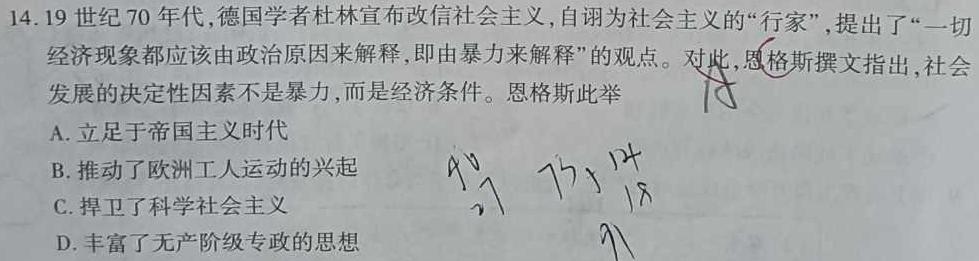 14. 19 世纪 70 年代,德国学者杜林宣布改信社会主义,自诩为社会主义的“行家”,提出了“一切
经济现象都应该由政治原因来解释,即由暴力来解释”的观点。对此,恩格斯撰文指出,社会
发展的决定性因素不是暴力,而是经济条件。恩格斯此举
A. 立足于帝国主义时代
B. 推动了欧洲工人运动的兴起
C. 捍卫了科学社会主义
D. 丰富了无产阶级专政的思想
18
91